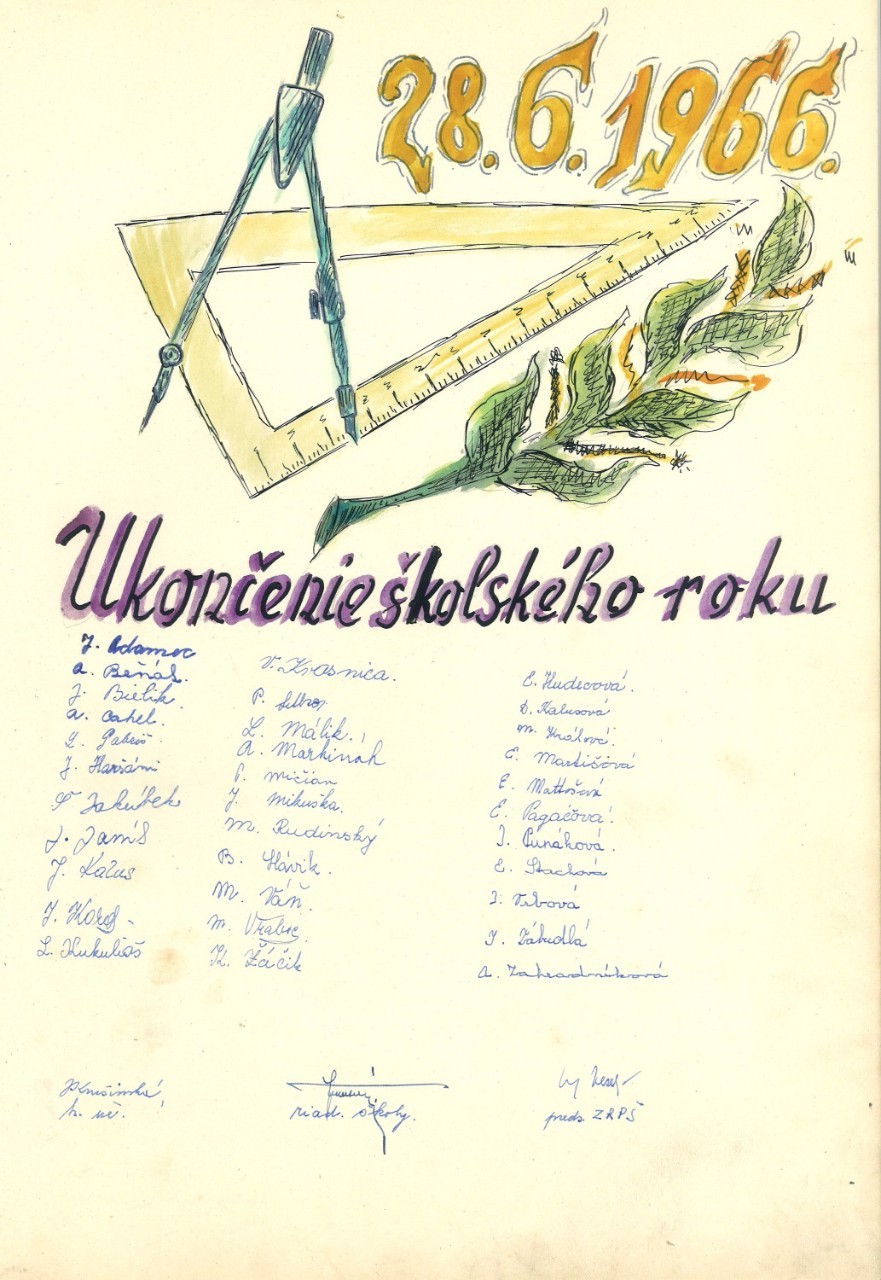 28. 6. 1966.
Ukončenie školského roku
J. Adamec
A. Beňáš.
J. Bielik.
A. Cahel.
J. Haršáni
Š. Jakúbek
J. Janiš
J. Kačus
J. Koroš
L. Kukuliaš
V. Krasnica.
P.
L. Málik.
A. Markináh
P. Mičian
J. Mikuška.
M. Rudinský
B. Slávik.
M. Váň.
M. Vrabec
K. Žáčik
E. Hudecová.
D. Kalusová
M. Králová.
E. Martišová
E. Mattošová
E. Pagáčová.
J. Punáková.
E. Stachová
J. Vrbová
J. Zábudlá
A. Zahradníková
tr. uč.
riad. školy.
preds. ZRPŠ